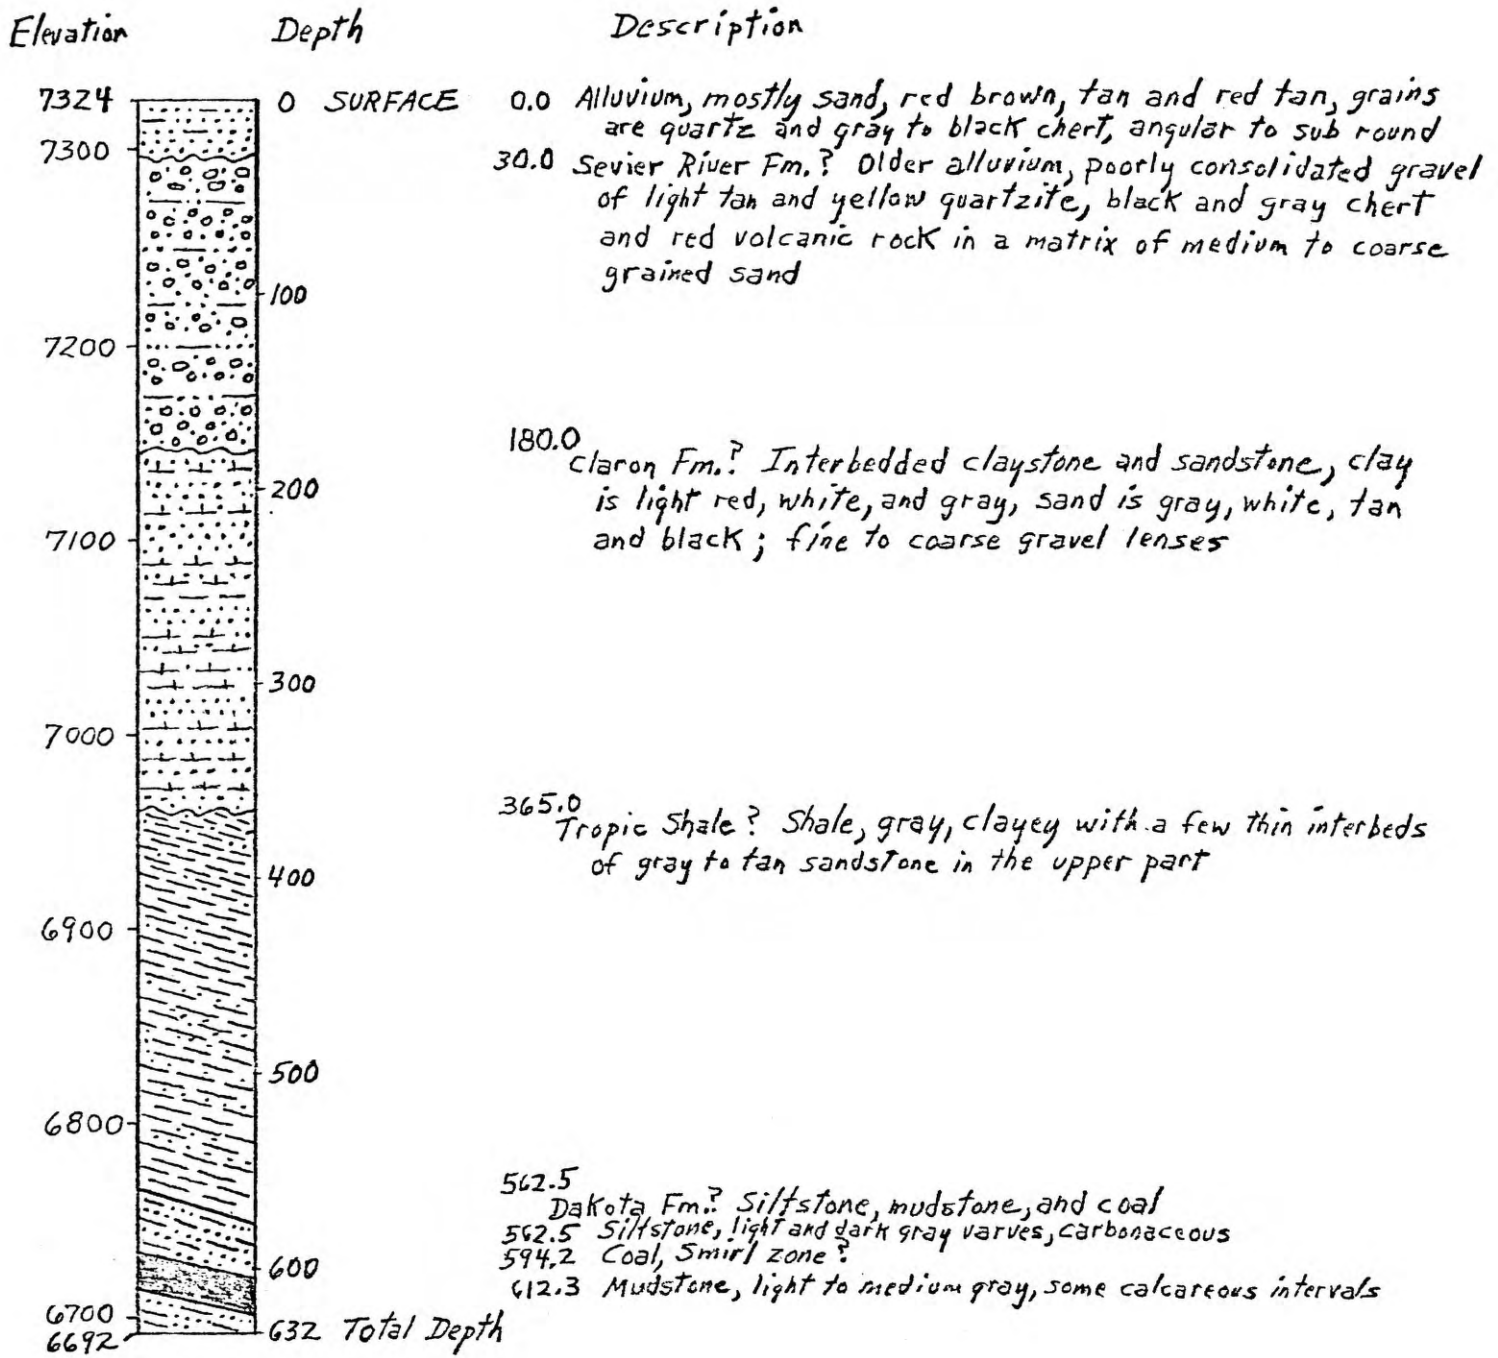 Elevation Depth Description
7324 0 SURFACE 0.0 Alluvium, mostly sand, red brown, tan and red tan, grains
are quartz and gray to black chert, angular to sub round
7300 30.0 Sevier River Fm.? Older alluvium, poorly consolidated gravel
of light tan and yellow quartzite, black and gray chert
and red volcanic rock in a matrix of medium to coarse
grained sand
100
7200
180.0
Claron Fm.? Interbedded claystone and sandstone, clay
200 is light red, white, and gray, sand is gray, white, tan
7100 and black; fine to coarse gravel lenses
300
7000
365.0
Tropic Shale? Shale, gray, clayey with a few thin interbeds
of gray to tan sandstone in the upper part
400
6900
500
6800
562.5
Dakota Fm.? Siltstone, mudstone, and coal
562.5 Siltstone, light and dark gray varves, carbonaceous
594.2 Coal, Smirl zone?
600
612.3 Mudstone, light to medium gray, some calcareous intervals
6700
6692 632 Total Depth